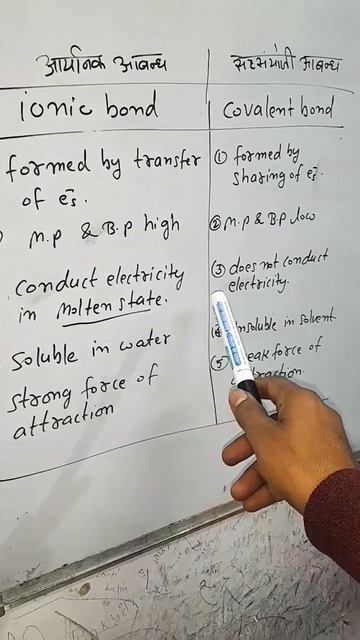 आयनिक आबन्ध
सहसंयोजी आबन्ध
ionic bond
Covalent bond
formed by transfer
of es.
M.P & B.P high
Conduct electricity
in Molten state.
Soluble in water
strong force of
attraction
① formed by
sharing of es.
② M.P & B.P low
③ does not conduct
electricity.
insoluble in solvent
⑤ force of